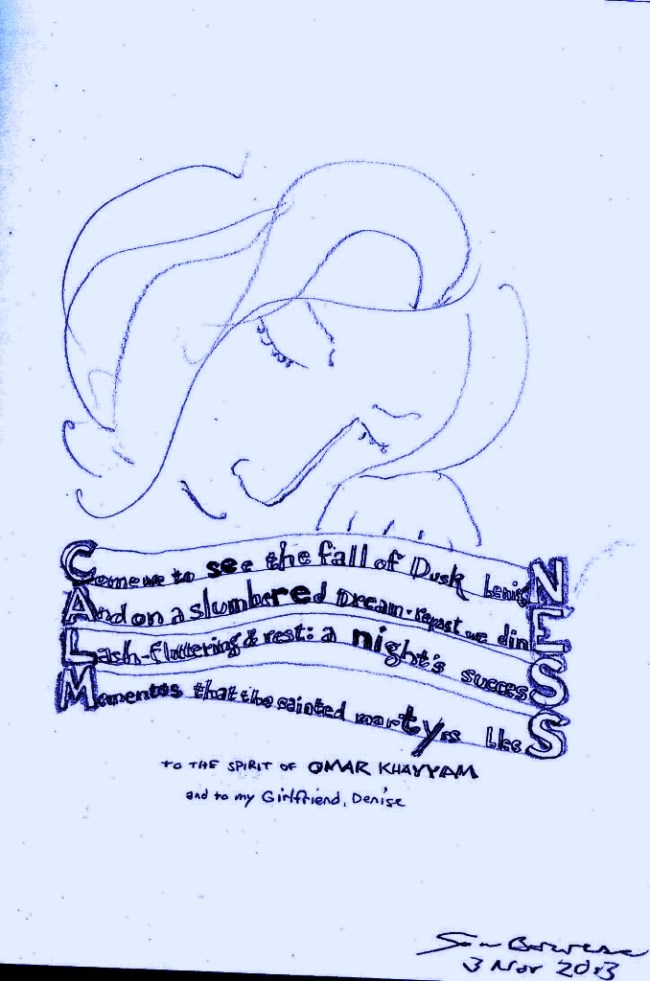 Come we to see the fall of Dusk benigN
And on a slumbered Dream-repast we dinE
Lash-fluttering & rest: a night's succesS
Mementos that the sainted martyrs
TO THE SPIRIT OF OMAR KHAYYAM
and to my Girlfriend, Denise
3 Nov 2013